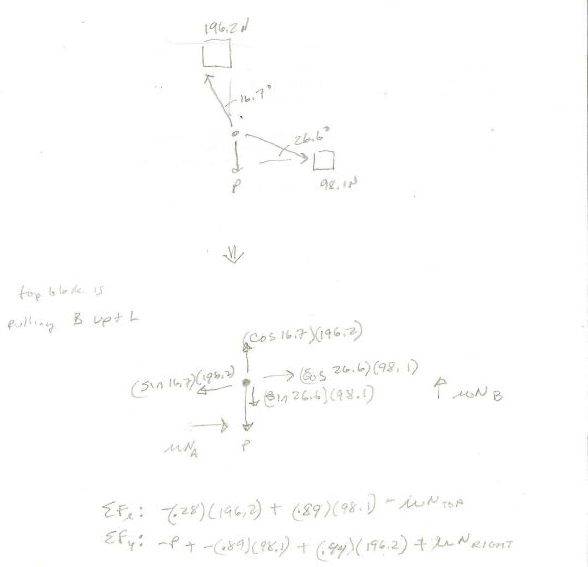 196.2N
16.7°
26.6°
P
98.1N
top block is
pulling B up + L
(cos 16.7)(196.2)
(sin 16.7)(196.2)
(cos 26.6)(98.1)
(sin 26.6)(98.1)
μN_B
μN_A
P
ΣFx: -(.28)(196.2) + (.89)(98.1) - μN_TOP
ΣFy: -P + -(.89)(98.1) + (.94)(196.2) + μN_RIGHT